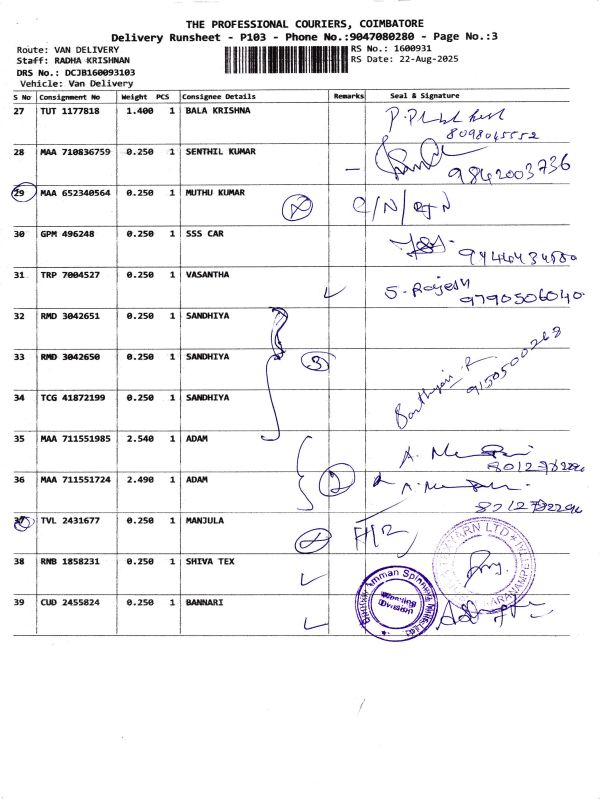 THE PROFESSIONAL COURIERS, COIMBATORE
Delivery Runsheet - P103 - Phone No.:9047080280 - Page No.:3
Route: VAN DELIVERY
RS No.: 1600931
Staff: RADHA KRISHNAN
RS Date: 22-Aug-2025
DRS No.: DCJB160093103
Vehicle: Van Delivery
S No Consignment No Weight PCS Consignee Details Remarks Seal & Signature
27 TUT 1177818 1.400 1 BALA KRISHNA
8098045552
28 MAA 710836759 0.250 1 SENTHIL KUMAR
9842003736
29 MAA 652340564 0.250 1 MUTHU KUMAR
30 GPM 496248 0.250 1 SSS CAR
31 TRP 7004527 0.250 1 VASANTHA S. Rajesh
9790506040
32 RMD 3042651 0.250 1 SANDHIYA
33 RMD 3042650 0.250 1 SANDHIYA 3
9150500268
34 TCG 41872199 0.250 1 SANDHIYA
35 MAA 711551985 2.540 1 ADAM
36 MAA 711551724 2.490 1 ADAM 2
37 TVL 2431677 0.250 1 MANJULA
38 RNB 1858231 0.250 1 SHIVA TEX
39 CUD 2455824 0.250 1 BANNARI
Amman Spinning
Weaving
Division